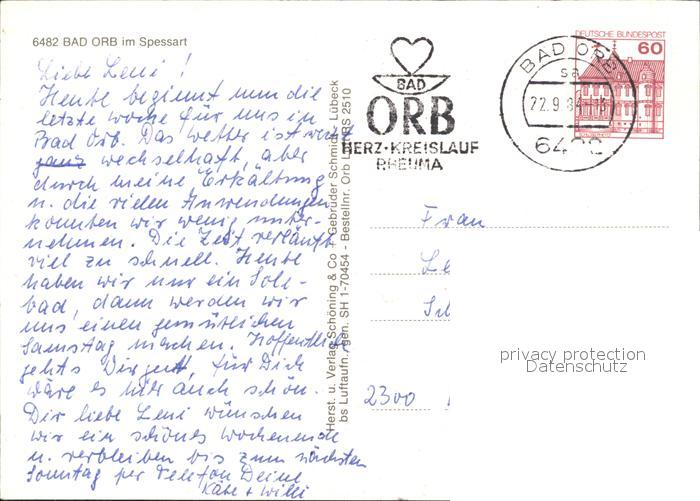 6482 BAD ORB im Spessart
Liebe Leni!
Heute beginnt nun die
letzte Woche für uns in
Bad Orb. Das Wetter ist
ganz wechselhaft, aber
durch meine Erkältung
u. die vielen Anwendungen
konnten wir wenig unter-
nehmen. Die Zeit verläuft
viel zu schnell. Heute
haben wir nur ein Sole-
bad, dann werden wir
uns einen gemütlichen
Samstag machen. Hoffentlich
gehts Dir gut, für Dich
wäre es hier auch schön.
Dir liebe Leni wünschen
wir ein schönes Wochenende
u. verbleiben bis zum nächsten
Sonntag per Telefon Deine
Käte + Willi
Herst. u. Verlag Schöning & Co + Gebrüder Schmidt Lübeck
Bestellnr. Orb
SH 1-70454
2510
BAD
ORB
HERZ-KREISLAUF
RHEUMA
BAD ORB
sa
22.9.84
DEUTSCHE BUNDESPOST
60
Frau
2300
privacy protection
Datenschutz